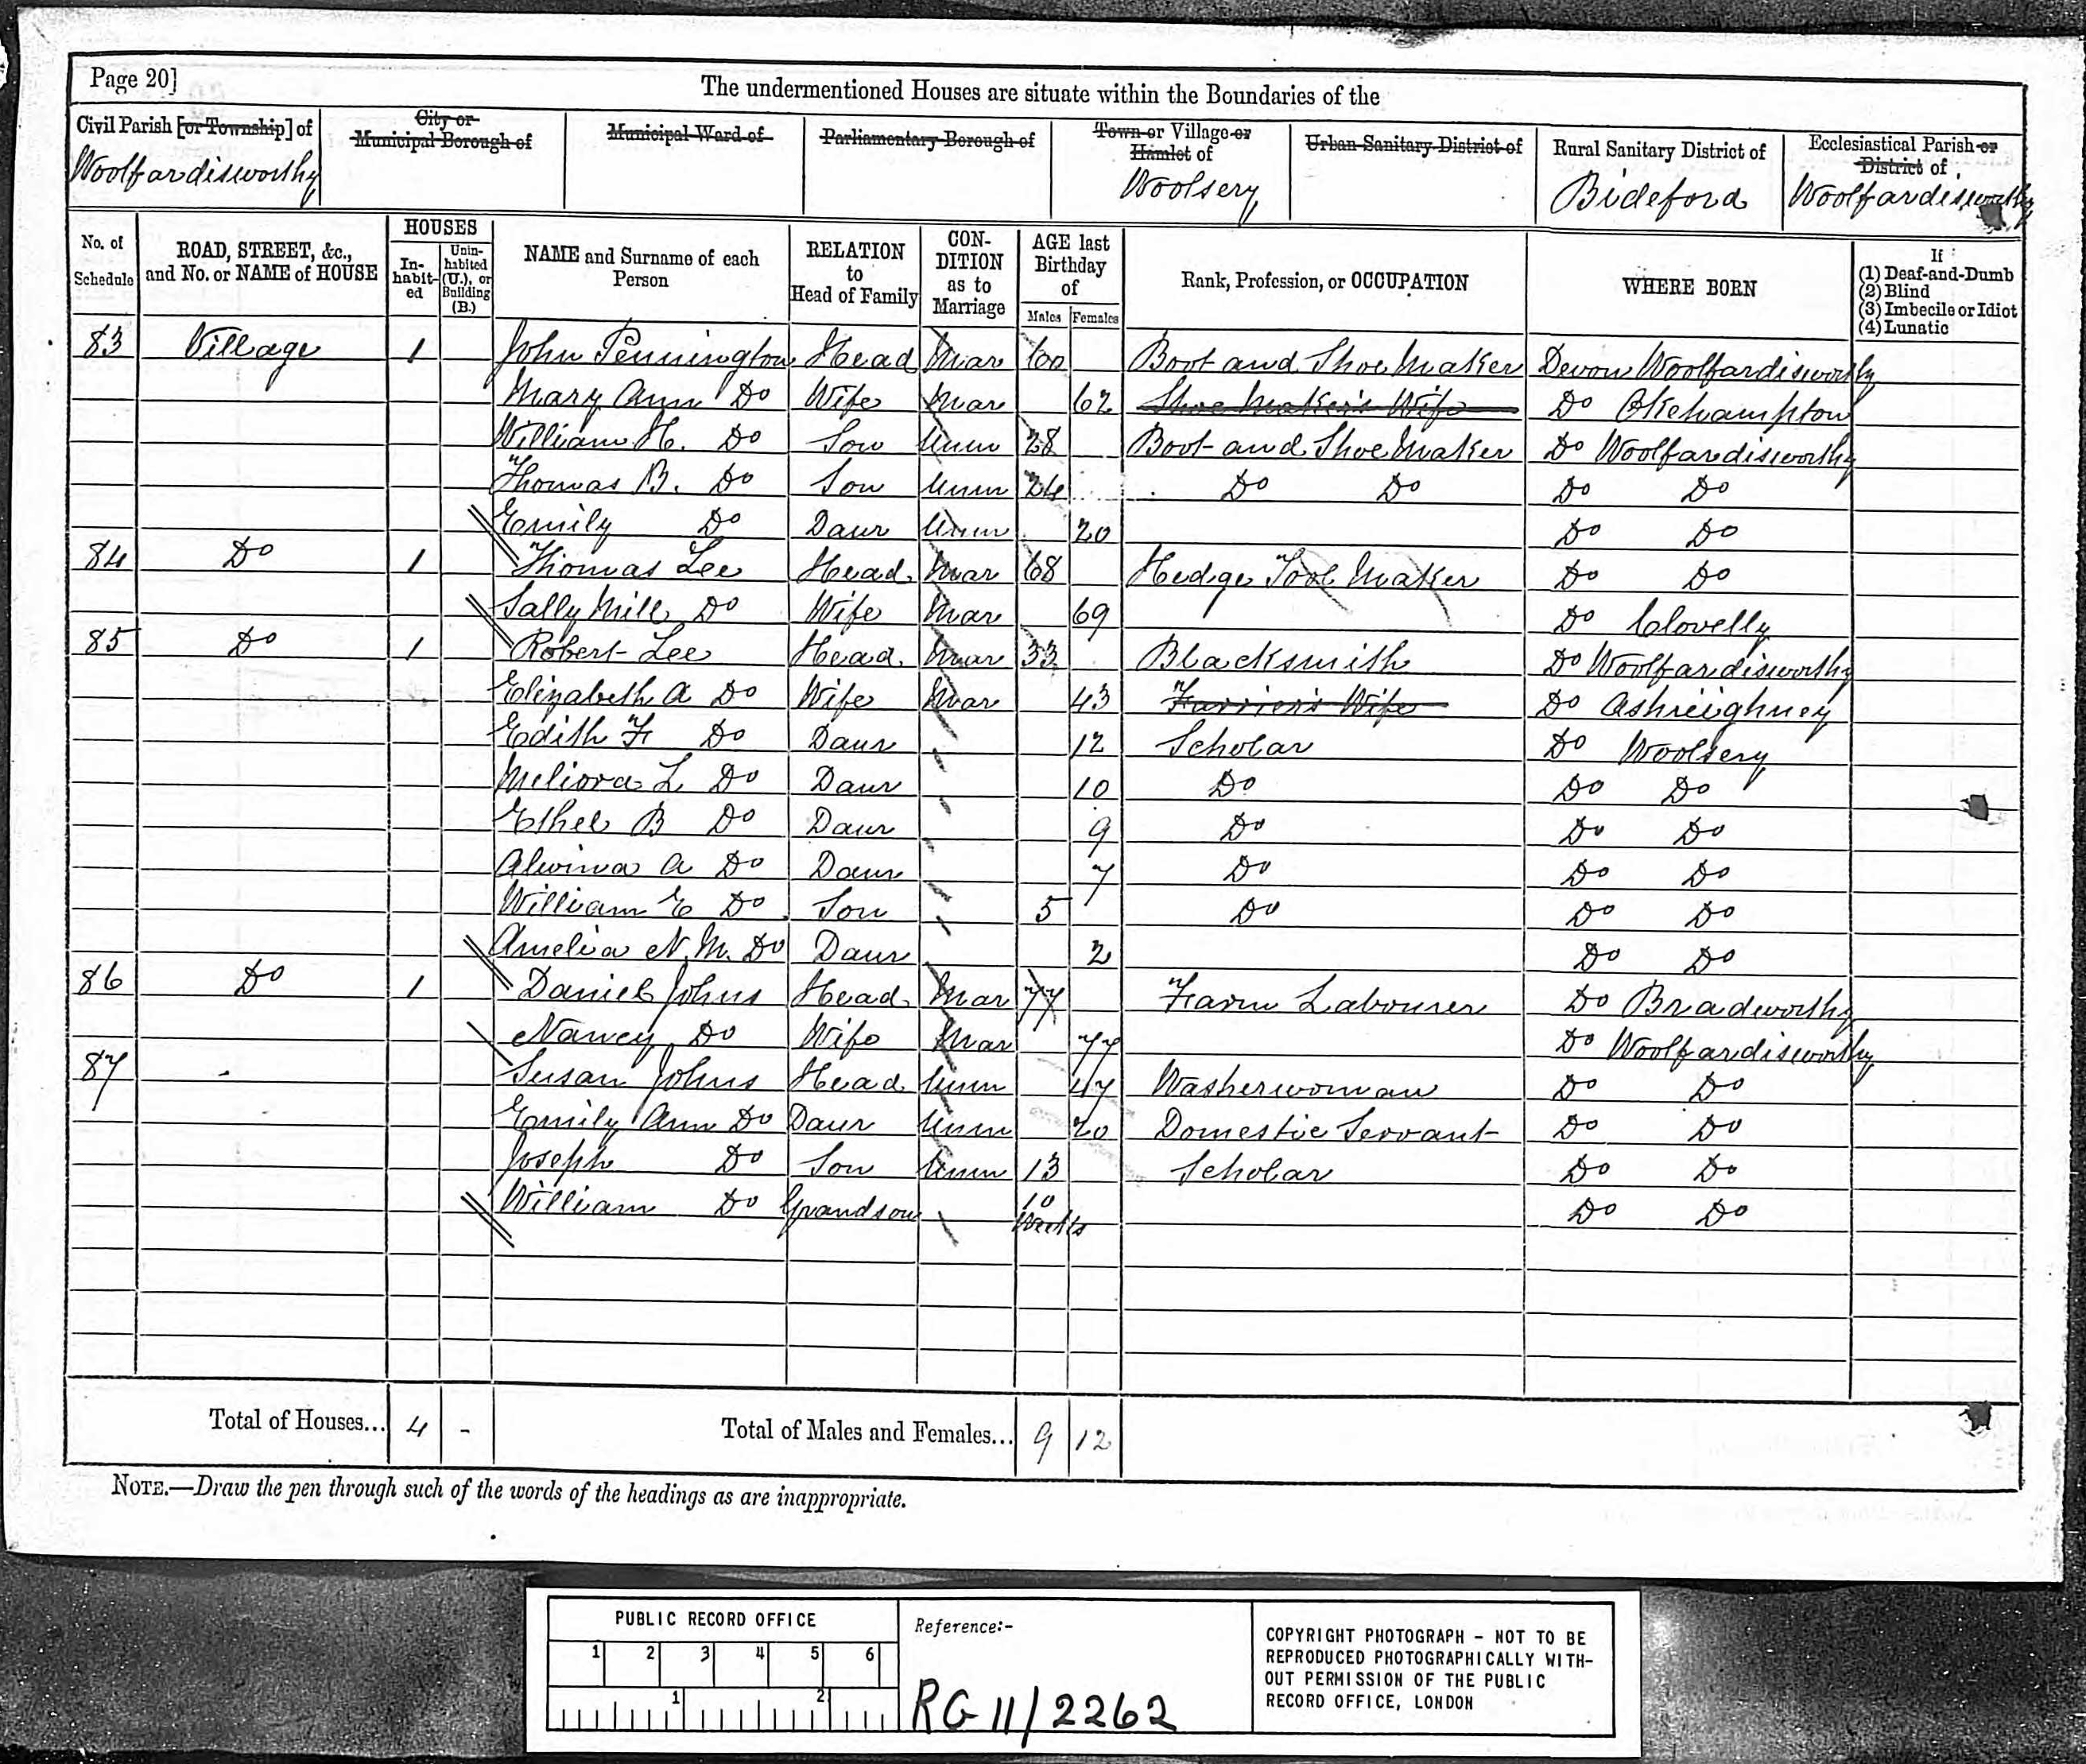 Page 20]
The undermentioned Houses are situate within the Boundaries of the
Civil Parish [or Township] of
Woolfardisworthy
City or
Municipal Borough of
Municipal Ward of
Parliamentary Borough of
Town or Village or
Hamlet of
Woolsery
Urban Sanitary District of
Rural Sanitary District of
Bideford
Ecclesiastical Parish or
District of
Woolfardisworthy
No. of Schedule
ROAD, STREET, &c., and No. or NAME of HOUSE
HOUSES
In-habit-ed
Unin-habited (U.), or Building (B.)
NAME and Surname of each Person
RELATION to Head of Family
CON-DITION as to Marriage
AGE last Birthday of
Males Females
Rank, Profession, or OCCUPATION
WHERE BORN
If
(1) Deaf-and-Dumb
(2) Blind
(3) Imbecile or Idiot
(4) Lunatic
83 Village 1 John Pennington Head Mar 60 Boot and Shoe Maker Devon Woolfardisworthy
Mary Ann Do Wife Mar 62 Shoe Maker's Wife Do Okehampton
William H. Do Son Unm 28 Boot and Shoe Maker Do Woolfardisworthy
Thomas B. Do Son Unm 24 Do Do Do Do
Emily Do Daur Unm 20 Do Do
84 Do 1 Thomas Lee Head Mar 68 Hedge Tool Maker Do Do
Sally Mill Do Wife Mar 69 Do Clovelly
85 Do 1 Robert Lee Head Mar 33 Blacksmith Do Woolfardisworthy
Elizabeth A Do Wife Mar 43 Farrier's Wife Do Ashreighney
Edith F Do Daur 12 Scholar Do Woolsery
Meliora L Do Daur 10 Do Do Do
Ethel B Do Daur 9 Do Do Do
Alwina A Do Daur 7 Do Do Do
William E Do Son 5 Do Do Do
Amelia N. M. Do Daur 2 Do Do
86 Do 1 Daniel Johns Head Mar 77 Farm Labourer Do Bradworthy
Nancy Do Wife Mar 77 Do Woolfardisworthy
87 - Susan Johns Head Unm 47 Washerwoman Do Do
Emily Ann Do Daur Unm 20 Domestic Servant Do Do
Joseph Do Son Unm 13 Scholar Do Do
William Do Grandson 10 Weeks Do Do
Total of Houses... 4 - Total of Males and Females... 9 12
NOTE.—Draw the pen through such of the words of the headings as are inappropriate.
PUBLIC RECORD OFFICE
1 2 3 4 5 6
1 2
Reference:-
RG 11/2262
COPYRIGHT PHOTOGRAPH - NOT TO BE
REPRODUCED PHOTOGRAPHICALLY WITH-
OUT PERMISSION OF THE PUBLIC
RECORD OFFICE, LONDON